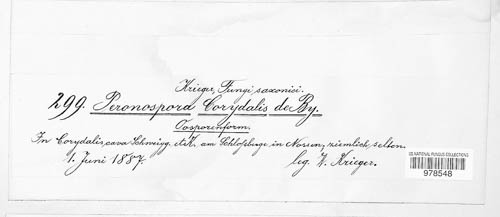 Krieger, Fungi saxonici.
299. Peronospora Corydalis de By.
Oosporenform.
In Corydalis cava Schweigg. et K. am Schloßberge in Nossen, ziemlich selten.
1. Juni 1887. leg. W. Krieger.
US NATIONAL FUNGUS COLLECTIONS
978548